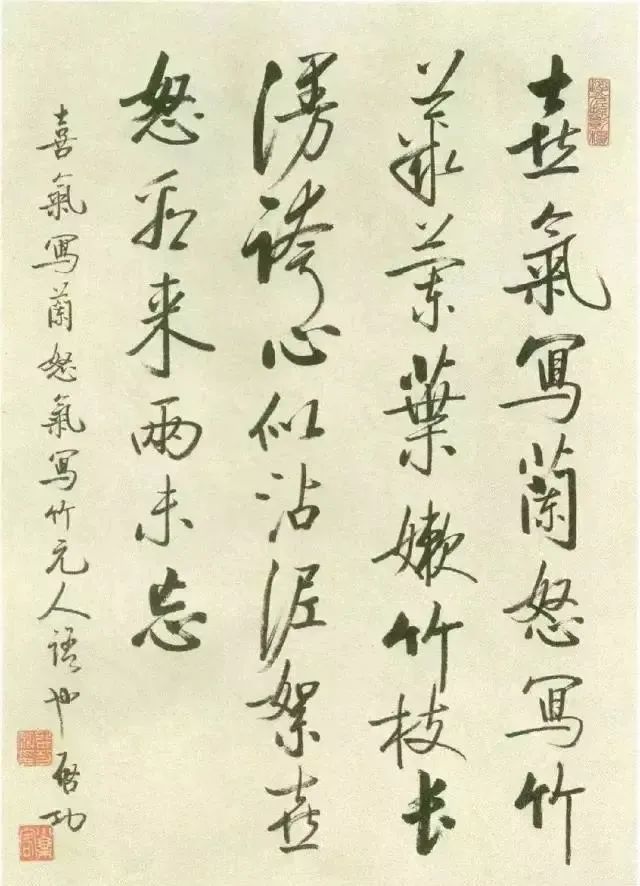 喜氣寫蘭怒寫竹
叢蘭葉嫩竹枝長
漫誇心似沾泥絮喜
怒看来兩未忘
喜氣寫蘭怒氣寫竹元人語也 啟功